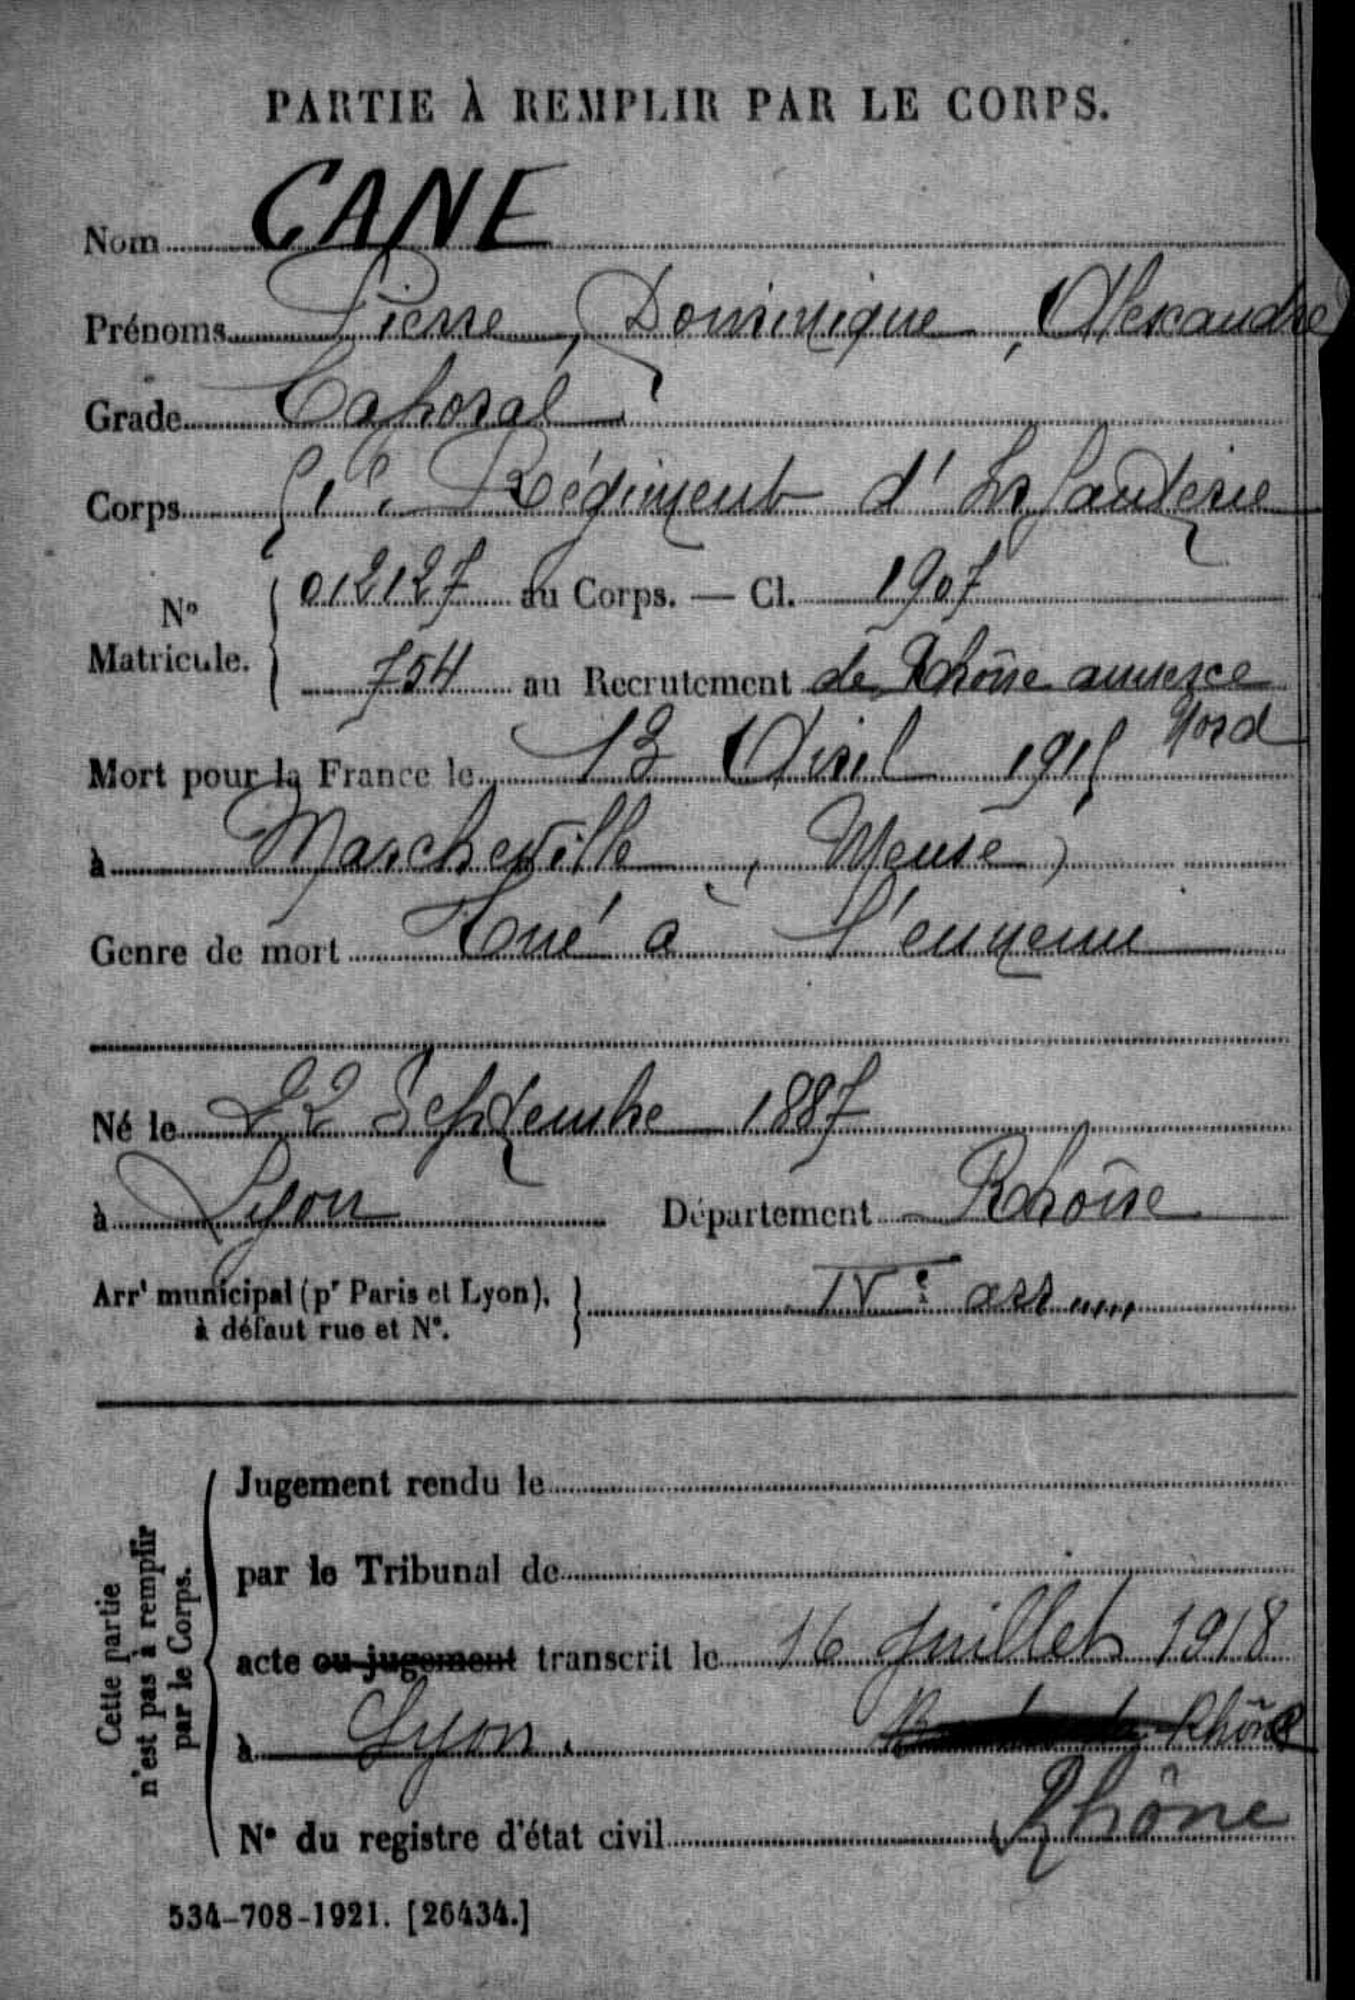 PARTIE À REMPLIR PAR LE CORPS.
Nom CANE
Prénoms Pierre, Dominique, Alexandre
Grade Caporal
Corps Régiment d'Infanterie
N° Matricule. 012127 au Corps. — Cl. 1907
754 au Recrutement de Rhône annexe
Nord
Mort pour la France le 13 Avril 1915
à Marcheville (Meuse)
Genre de mort Tué à l'ennemi
Né le 22 Septembre 1887
à Lyon Département Rhône
Arrt municipal (pr Paris et Lyon), IVe arr
à défaut rue et N°.
Cette partie
n'est pas à remplir
par le Corps.
Jugement rendu le
par le Tribunal de
acte ou jugement transcrit le 16 Juillet 1918
à Lyon. Rhône
N° du registre d'état civil Rhône
534-708-1921. [26434.]